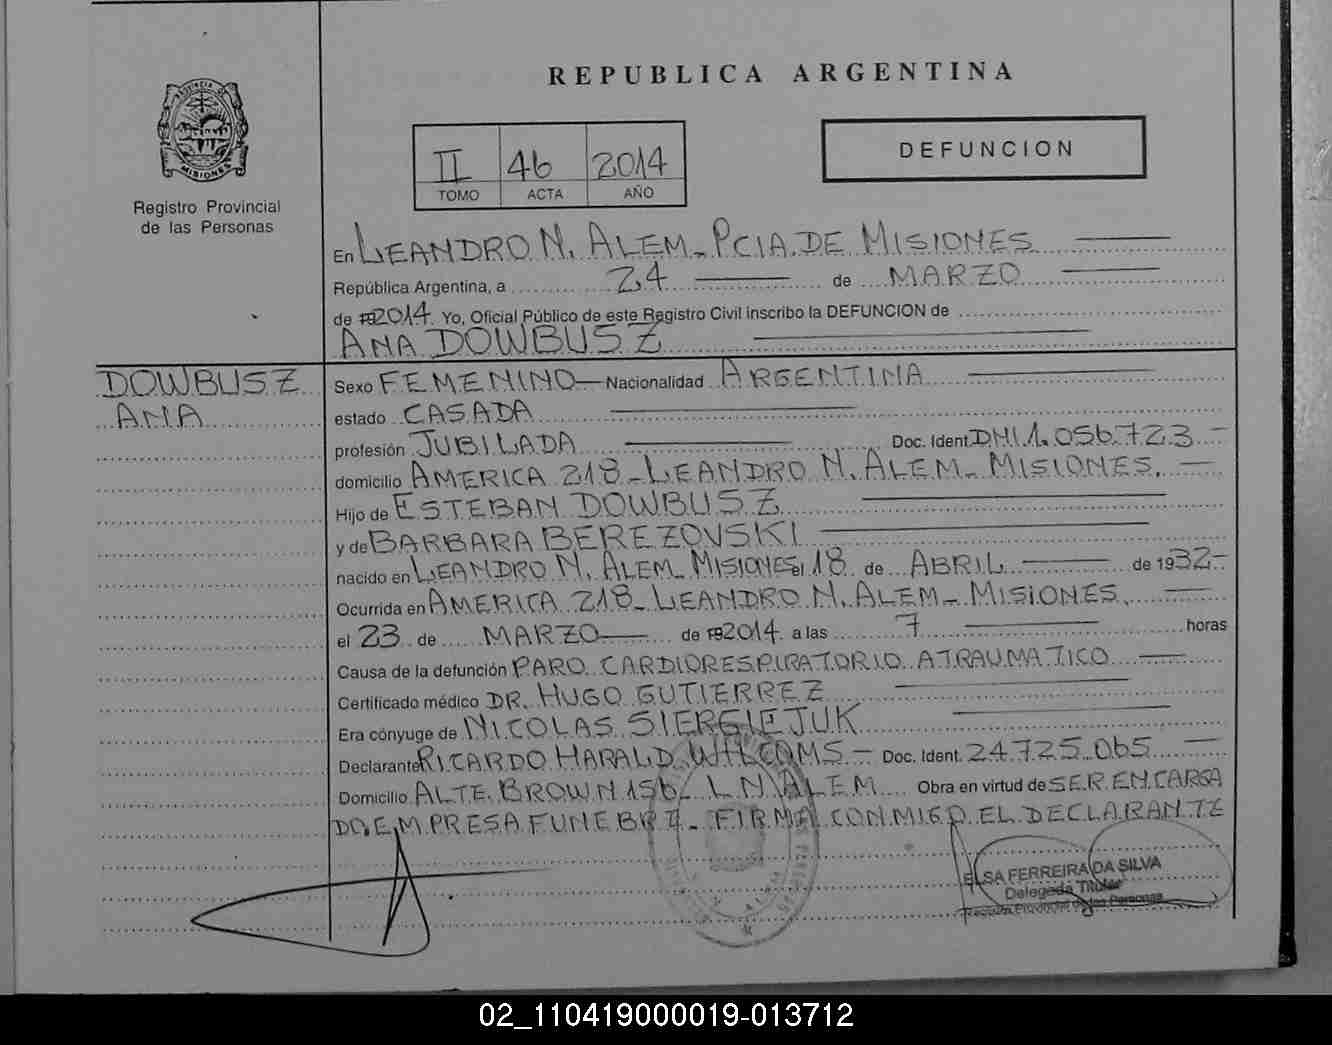 REPUBLICA ARGENTINA
PROVINCIA DE
MISIONES
Registro Provincial
de las Personas
II 46 2014
TOMO ACTA AÑO
DEFUNCION
En LEANDRO N. ALEM - PCIA. DE MISIONES
República Argentina, a 24 de MARZO
de 2014 Yo, Oficial Público de este Registro Civil inscribo la DEFUNCION de
ANA DOWBUSZ
DOWBUSZ
ANA
Sexo FEMENINO - Nacionalidad ARGENTINA
estado CASADA
profesión JUBILADA Doc. Ident. DNI 1.056.723 -
domicilio AMERICA 218 - LEANDRO N. ALEM - MISIONES.
Hijo de ESTEBAN DOWBUSZ
y de BARBARA BEREZOVSKI
nacido en LEANDRO N. ALEM - MISIONES el 18 de ABRIL de 1932 -
Ocurrida en AMERICA 218 - LEANDRO N. ALEM - MISIONES.
el 23 de MARZO de 2014 a las 7 horas
Causa de la defunción PARO CARDIORESPIRATORIO ATRAUMATICO
Certificado médico DR. HUGO GUTIERREZ
Era cónyuge de NICOLAS SIERGIEJUK
Declarante RICARDO HARALD Doc. Ident. 24.725.065
Domicilio ALTE. BROWN 156 - L.N. ALEM Obra en virtud de SER ENCARGA
DO EMPRESA FUNEBRE - FIRMA CONMIGO EL DECLARANTE
ELSA FERREIRA DA SILVA
Delegada Titular
Registro Provincial de las Personas
02_110419000019-013712